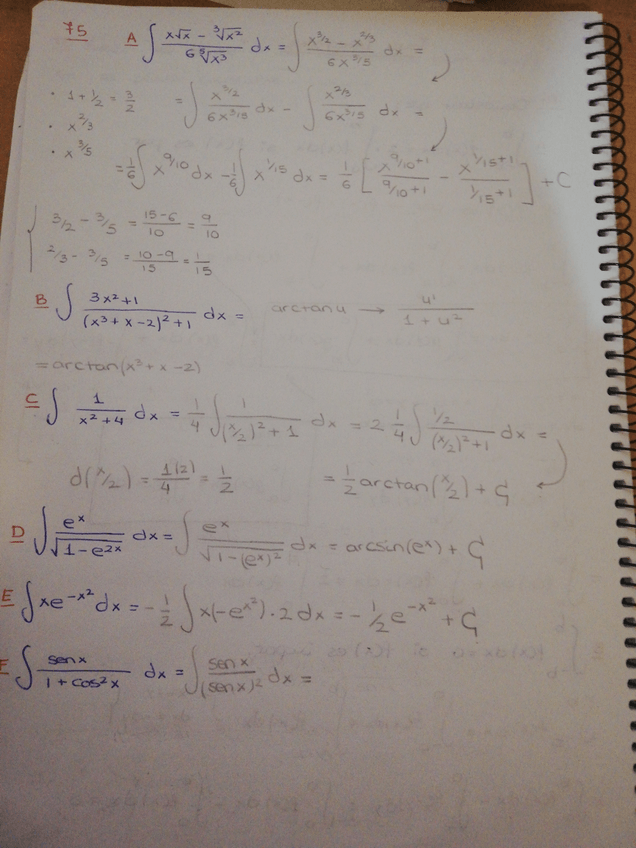 75 A ∫ (x√x − ∛x²)/(6 ⁵√x³) dx = ∫ (x^(3/2) − x^(2/3))/(6x^(3/5)) dx =
· 1 + 1/2 = 3/2 = ∫ x^(3/2)/(6x^(3/5)) dx − ∫ x^(2/3)/(6x^(3/5)) dx =
· x^(2/3)
· x^(3/5) = 1/6 ∫ x^(9/10) dx − 1/6 ∫ x^(1/15) dx = 1/6 [ x^(9/10+1)/(9/10+1) − x^(1/15+1)/(1/15+1) ] + C
3/2 − 3/5 = (15−6)/10 = 9/10
2/3 − 3/5 = (10−9)/15 = 1/15
B ∫ (3x²+1)/((x³+x−2)²+1) dx = arctan u → u'/(1+u²)
= arctan(x³+x−2)
C ∫ 1/(x²+4) dx = 1/4 ∫ 1/((x/2)²+1) dx = 2 1/4 ∫ (1/2)/((x/2)²+1) dx =
d(x/2) = 1(2)/4 = 1/2 = 1/2 arctan(x/2) + C
D ∫ e^x/√(1−e^(2x)) dx = ∫ e^x/√(1−(e^x)²) dx = arcsin(e^x) + C
E ∫ xe^(−x²) dx = −1/2 ∫ x(−e^(x²))·2 dx = −1/2 e^(−x²) + C
F ∫ sen x/(1+cos²x) dx = ∫ sen x/(sen x)² dx =